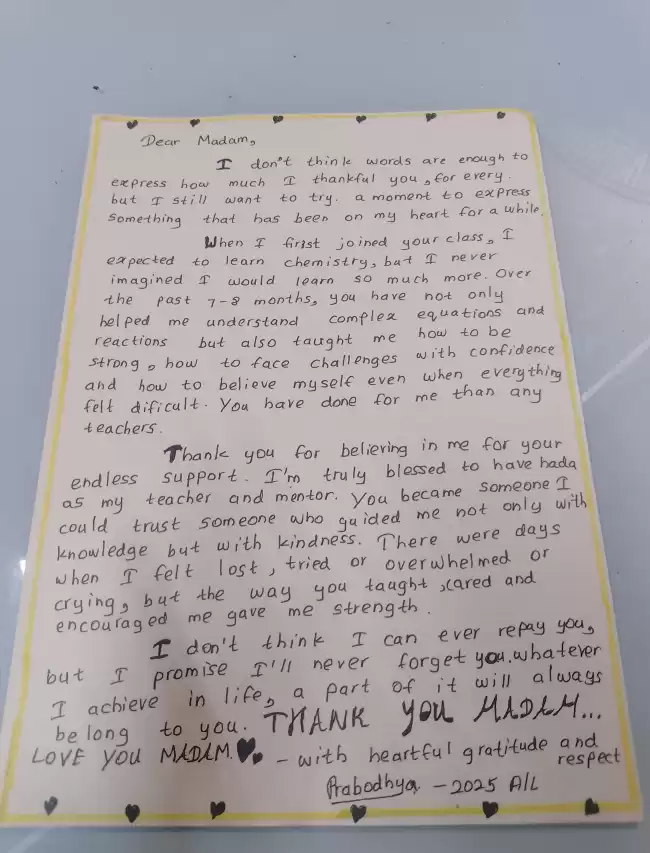 Dear Madam,
I don't think words are enough to
express how much I thankful you, for every.
but I still want to try. a moment to express
something that has been on my heart for a while.
When I firist joined your class, I
expected to learn chemistry, but I never
imagined I would learn so much more. Over
the past 7-8 months, you have not only
helped me understand complex equations and
reactions but also taught me how to be
strong, how to face challenges with confidence
and how to believe myself even when everything
felt dificult. You have done for me than any
teachers.
Thank you for believing in me for your
endless support. I'm truly blessed to have hada
as my teacher and mentor. You became someone I
could trust someone who guided me not only with
knowledge but with kindness. There were days
when I felt lost, tried or overwhelmed or
crying, but the way you taught ,cared and
encouraged me gave me strength.
I don't think I can ever repay you,
but I promise I'll never forget you.whatever
I achieve in life, a part of it will always
belong to you. THANK YOU MADAM...
LOVE YOU MADAM.♥♥ - with heartful gratitude and
respect
Prabodhya - 2025 A/L